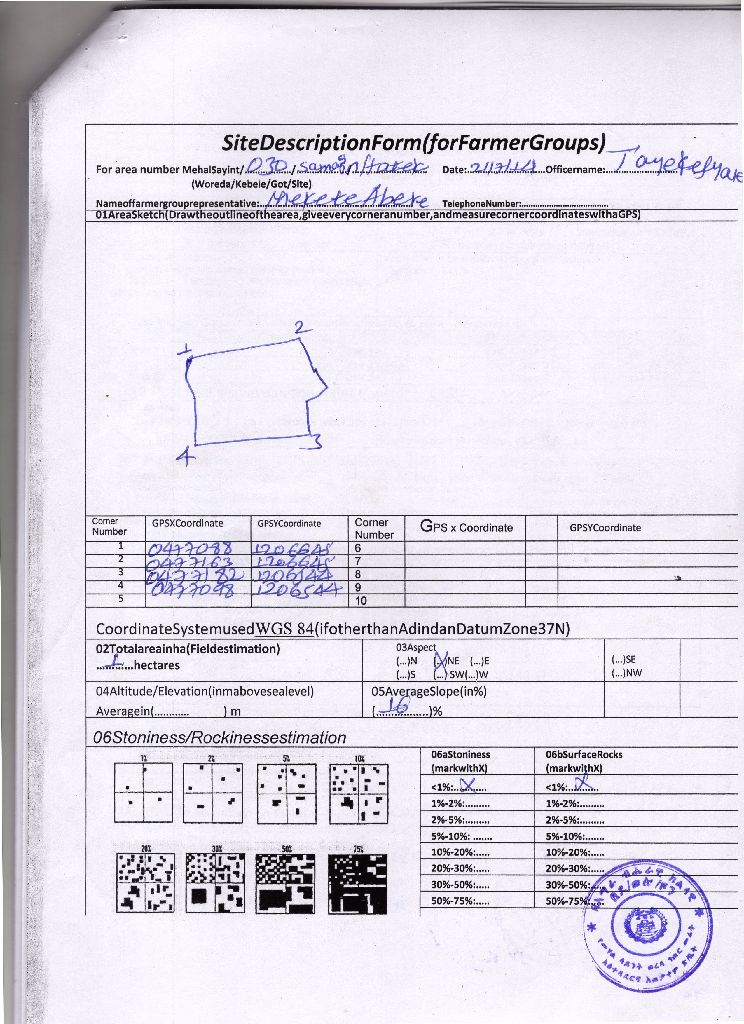 SiteDescriptionForm(forFarmerGroups)
For area number MehalSayint/.030./. Date:. Officername:. Taye
(Woreda/Kebele/Got/Site)
Nameoffarmergrouprepresentative:. Mekete Abeke TelephoneNumber:..............................
01AreaSketch(Drawtheoutlineofthearea,giveeverycorneranumber,andmeasurecornercoordinateswithaGPS)
1 2
4 3
Corner Number GPSXCoordinate GPSYCoordinate Corner Number GPS x Coordinate GPSYCoordinate
1 0477088 1206645 6
2 0477163 1206645 7
3 0477182 1206544 8
4 0477098 1206544 9
5 10
CoordinateSystemusedWGS 84(ifotherthanAdindanDatumZone37N)
02Totalareainha(Fieldestimation) 03Aspect
....1......hectares (...)N (.X.)NE (...)E (...)SE
(...)S (...)SW(...)W (...)NW
04Altitude/Elevation(inmabovesealevel) 05AverageSlope(in%)
Averagein(............ ) m (...16...)%
06Stoniness/Rockinessestimation
1% 2% 5% 10%
20% 30% 50% 75%
06aStoniness (markwithX) 06bSurfaceRocks (markwithX)
<1%:..X..... <1%:..X.....
1%-2%:......... 1%-2%:.........
2%-5%:......... 2%-5%:.........
5%-10%: ....... 5%-10%:.......
10%-20%:..... 10%-20%:.....
20%-30%:..... 20%-30%:.....
30%-50%:..... 30%-50%:.....
50%-75%:..... 50%-75%:.....